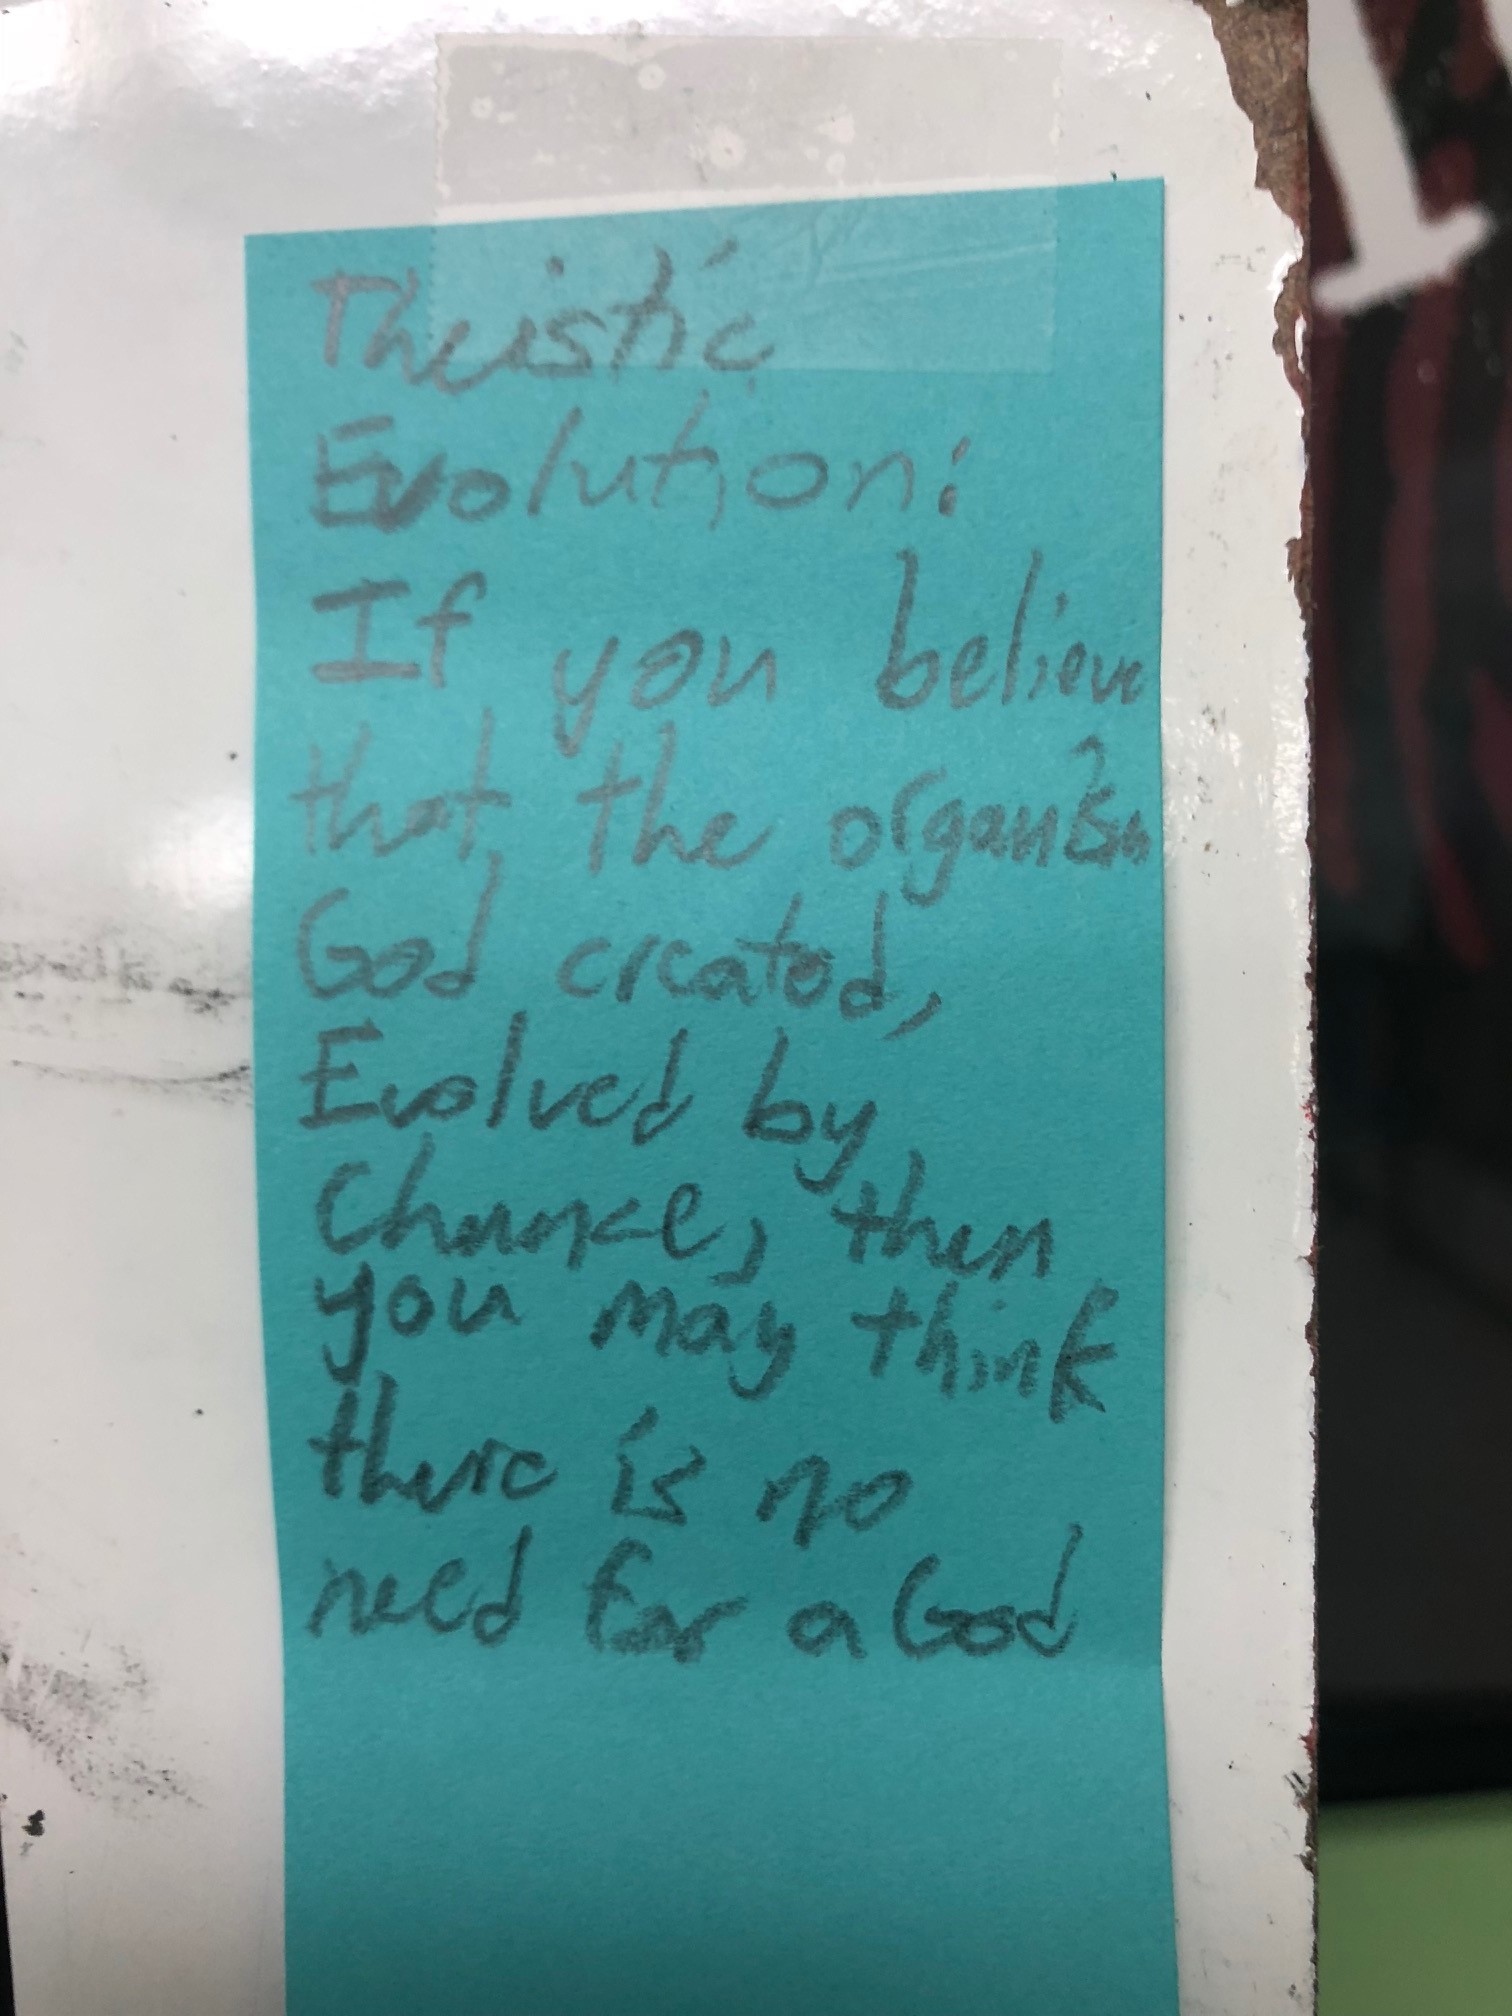 Theistic
Evolution:
If you believe
that the organism
God created,
Evolved by
Chance, then
you may think
there is no
need for a God